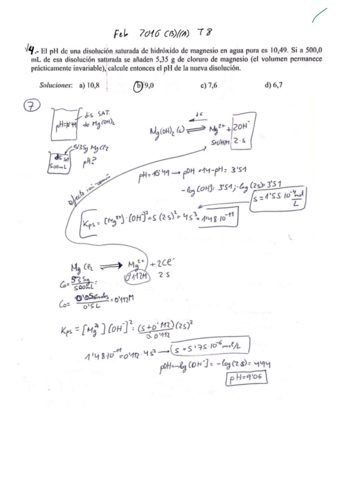 Feb 2016 (B)/(A) T8
4.- El pH de una disolución saturada de hidróxido de magnesio en agua pura es 10,49. Si a 500,0
mL de esa disolución se añaden 5,35 g de cloruro de magnesio (el volumen permanece
prácticamente invariable), calcule entonces el pH de la nueva disolución.
Soluciones: a) 10,8 b) 9,0 c) 7,6 d) 6,7
7
dis SAT.
de Mg(OH)₂
Mg(OH)₂ (s) ⇌ Mg²⁺ + 2OH⁻
2s
500mL
pH?
pH=10'49 → pOH =14-pH= 3'51
-log(OH)= 3'51; -log(2s)= 3'51
s=1'55·10⁻⁴ mol/L
Kps = [Mg²⁺]·[OH⁻]² = s(2s)² = 4s³ = 1'48·10⁻¹¹
MgCl₂ → Mg²⁺ + 2Cl⁻
0'112M 2s
Kps = [Mg²⁺][OH⁻]² = (s+0'112)(2s)²
1'48·10⁻¹¹ = 0'112·4s² → s = 5'75·10⁻⁶ mol/L
pOH=-log[OH⁻] = -log(2s)=4'94
pH=9'06